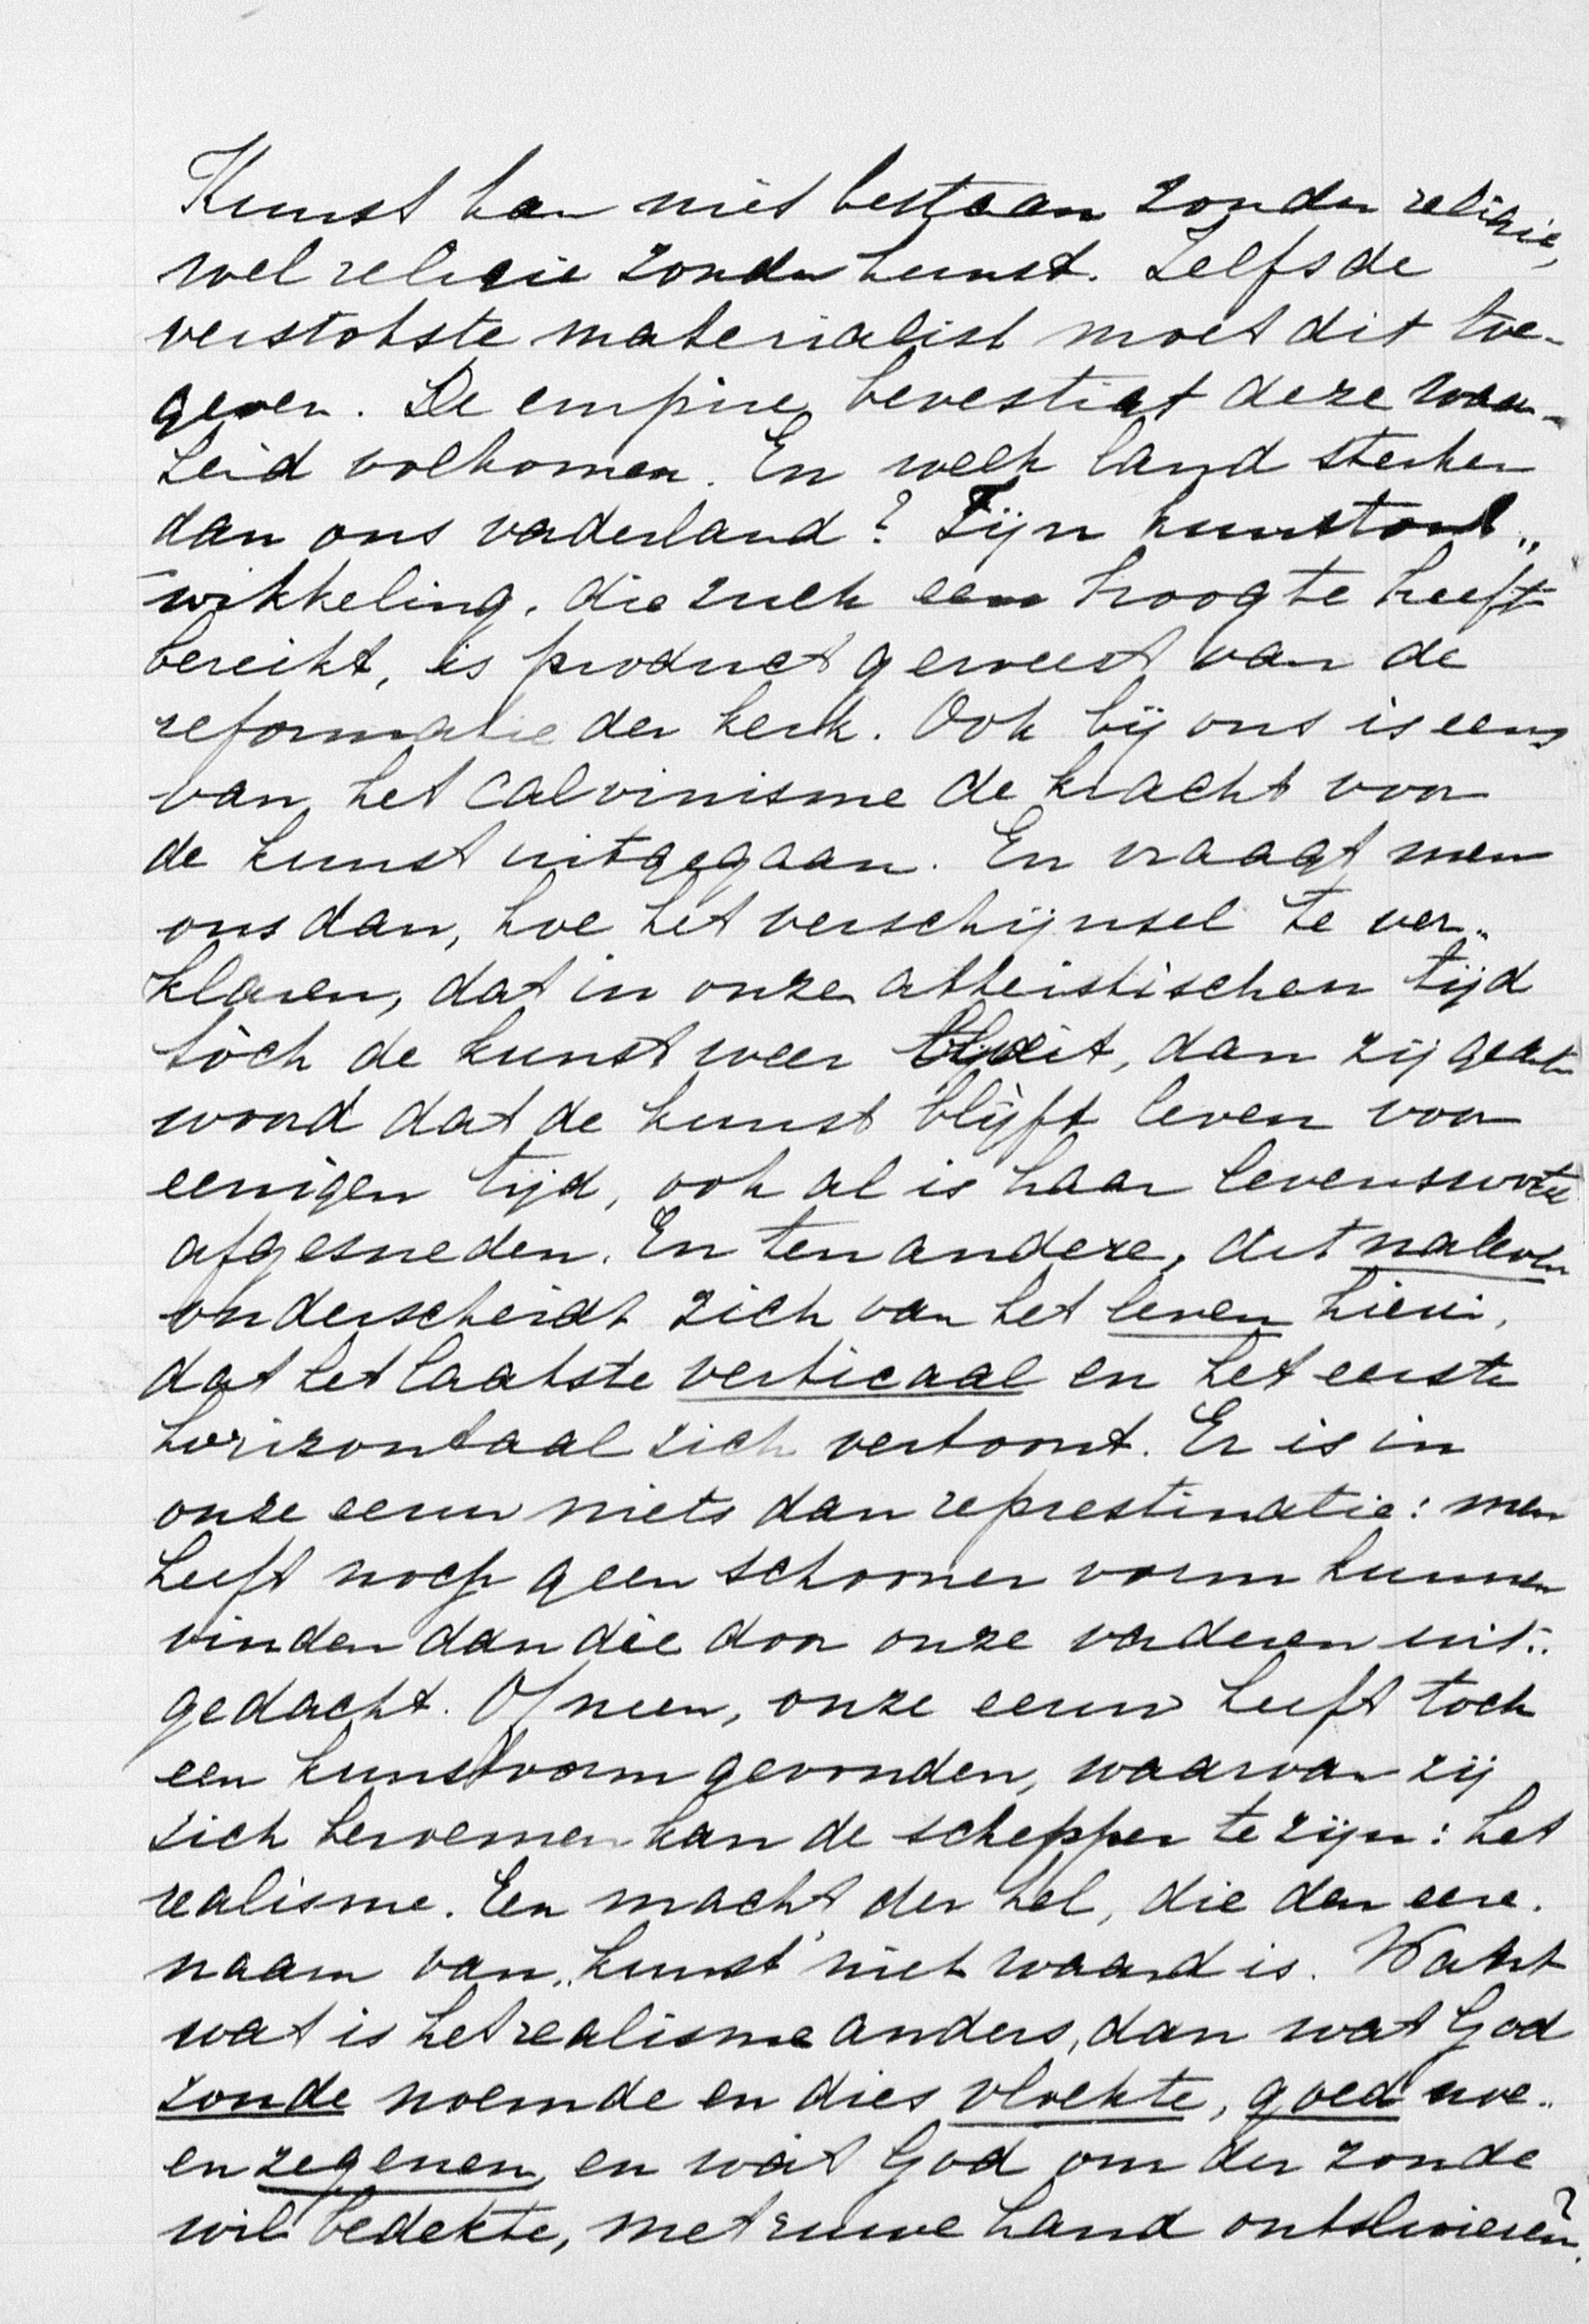 Kunst kan niet bestaan zonder religie,
wel religie zonder kunst. Zelfs de
verstokste materialist moet dit toe-
geven. De empirie bevestigt deze waar-
heid volkomen. En welk land sterker
dan ons vaderland? Zijn kunstont„
wikkeling, die zulk een hoogte heeft
bereikt, is product geweest van de
reformatie der kerk. Ook bij ons is eens
van het Calvinisme de kracht voor
de kunst uitgegaan. En vraagt men
ons dan, hoe het verschijnsel te ver„
klaren, dat in onze atheistischen tijd
tòch de kunst weer bloeit, dan zij geant
woord dat de kunst blijft leven voor
eenigen tijd, ook al is haar levenswortel
afgesneden. En ten andere, dit naleven
onderscheidt zich van het leven hierin,
dat het laatste verticaal en het eerste
horizontaal zich vertoont. Er is in
onze eeuw niets dan represtinatie: men
heeft noch geen schooner vorm kunnen
vinden dan die door onze vaderen uit„
gedacht. Of neen, onze eeuw heeft toch
een kunstvorm gevonden, waarvan zij
zich beroemen kan de schepper te zijn: het
realisme. Een macht der hel, die den eere.
naam van „kunst" niet waard is. Want
wat is het realisme anders, dan wat God
zonde noemde en dies vloekte, goed noe„
en zegenen, en wat God om der zonde
wil bedekte, met ruwe hand ontsluieren?